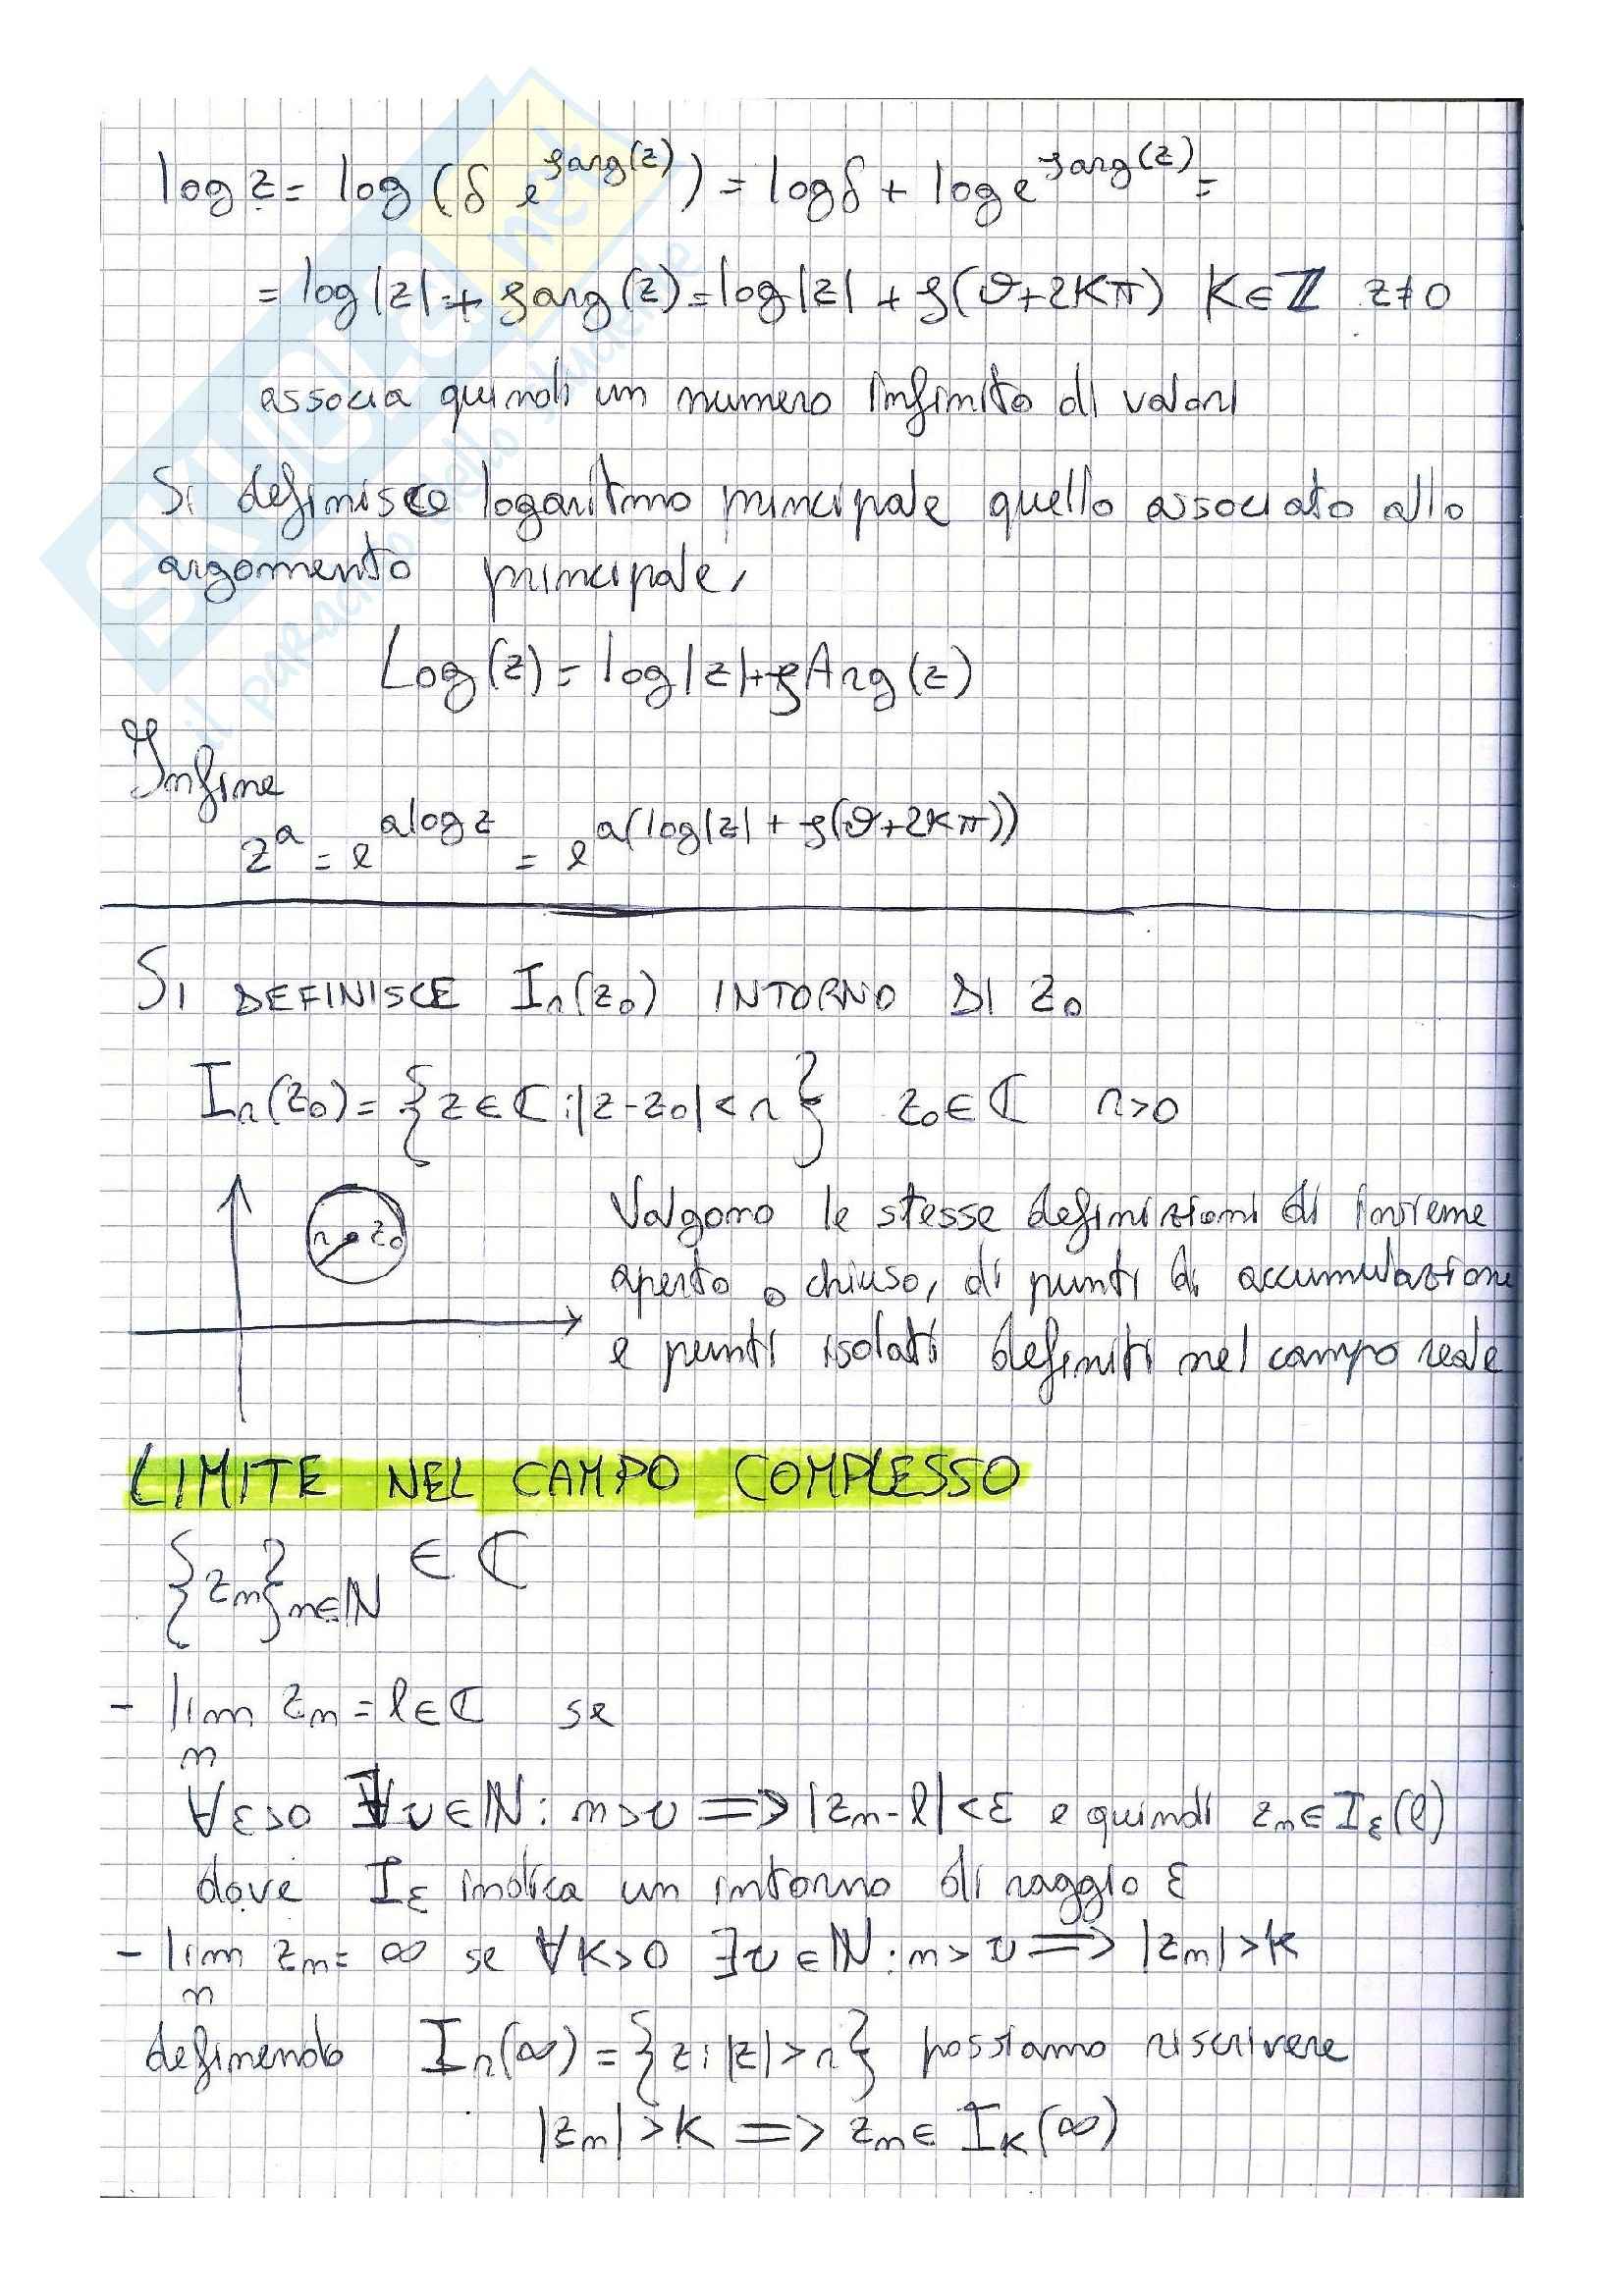 log z = log (δ e^{j arg(z)}) = log δ + log e^{j arg(z)} =
= log |z| + j arg (z) = log |z| + j(ϑ+2Kπ) K∈ℤ z≠0
associa quindi un numero infinito di valori
Si definisce logaritmo principale quello associato allo
argomento principale,
Log(z) = log|z| + j Arg (z)
Infine
z^a = e^{a log z} = e^{a(log|z| + j(ϑ+2Kπ))}
SI DEFINISCE I_r(z_0) INTORNO DI z_0
I_r(z_0) = {z∈ℂ : |z-z_0| < r} z_0∈ℂ r>0
r z_0
Valgono le stesse definizioni di insieme
aperto o chiuso, di punti di accumulazione
e punti isolati definiti nel campo reale
LIMITE NEL CAMPO COMPLESSO
{z_n}_{n∈ℕ} ∈ ℂ
- lim_n z_n = l∈ℂ se
∀ε>0 ∃ν∈ℕ : n>ν ⟹ |z_n - l| < ε e quindi z_n∈I_ε(l)
dove I_ε indica un intorno di raggio ε
- lim_n z_n = ∞ se ∀K>0 ∃ν∈ℕ : n>ν ⟹ |z_n| > K
definendo I_r(∞) = {z : |z| > r} possiamo riscrivere
|z_n| > K ⟹ z_n∈ I_K(∞)
SKUOLA.net
il paradiso dello studente